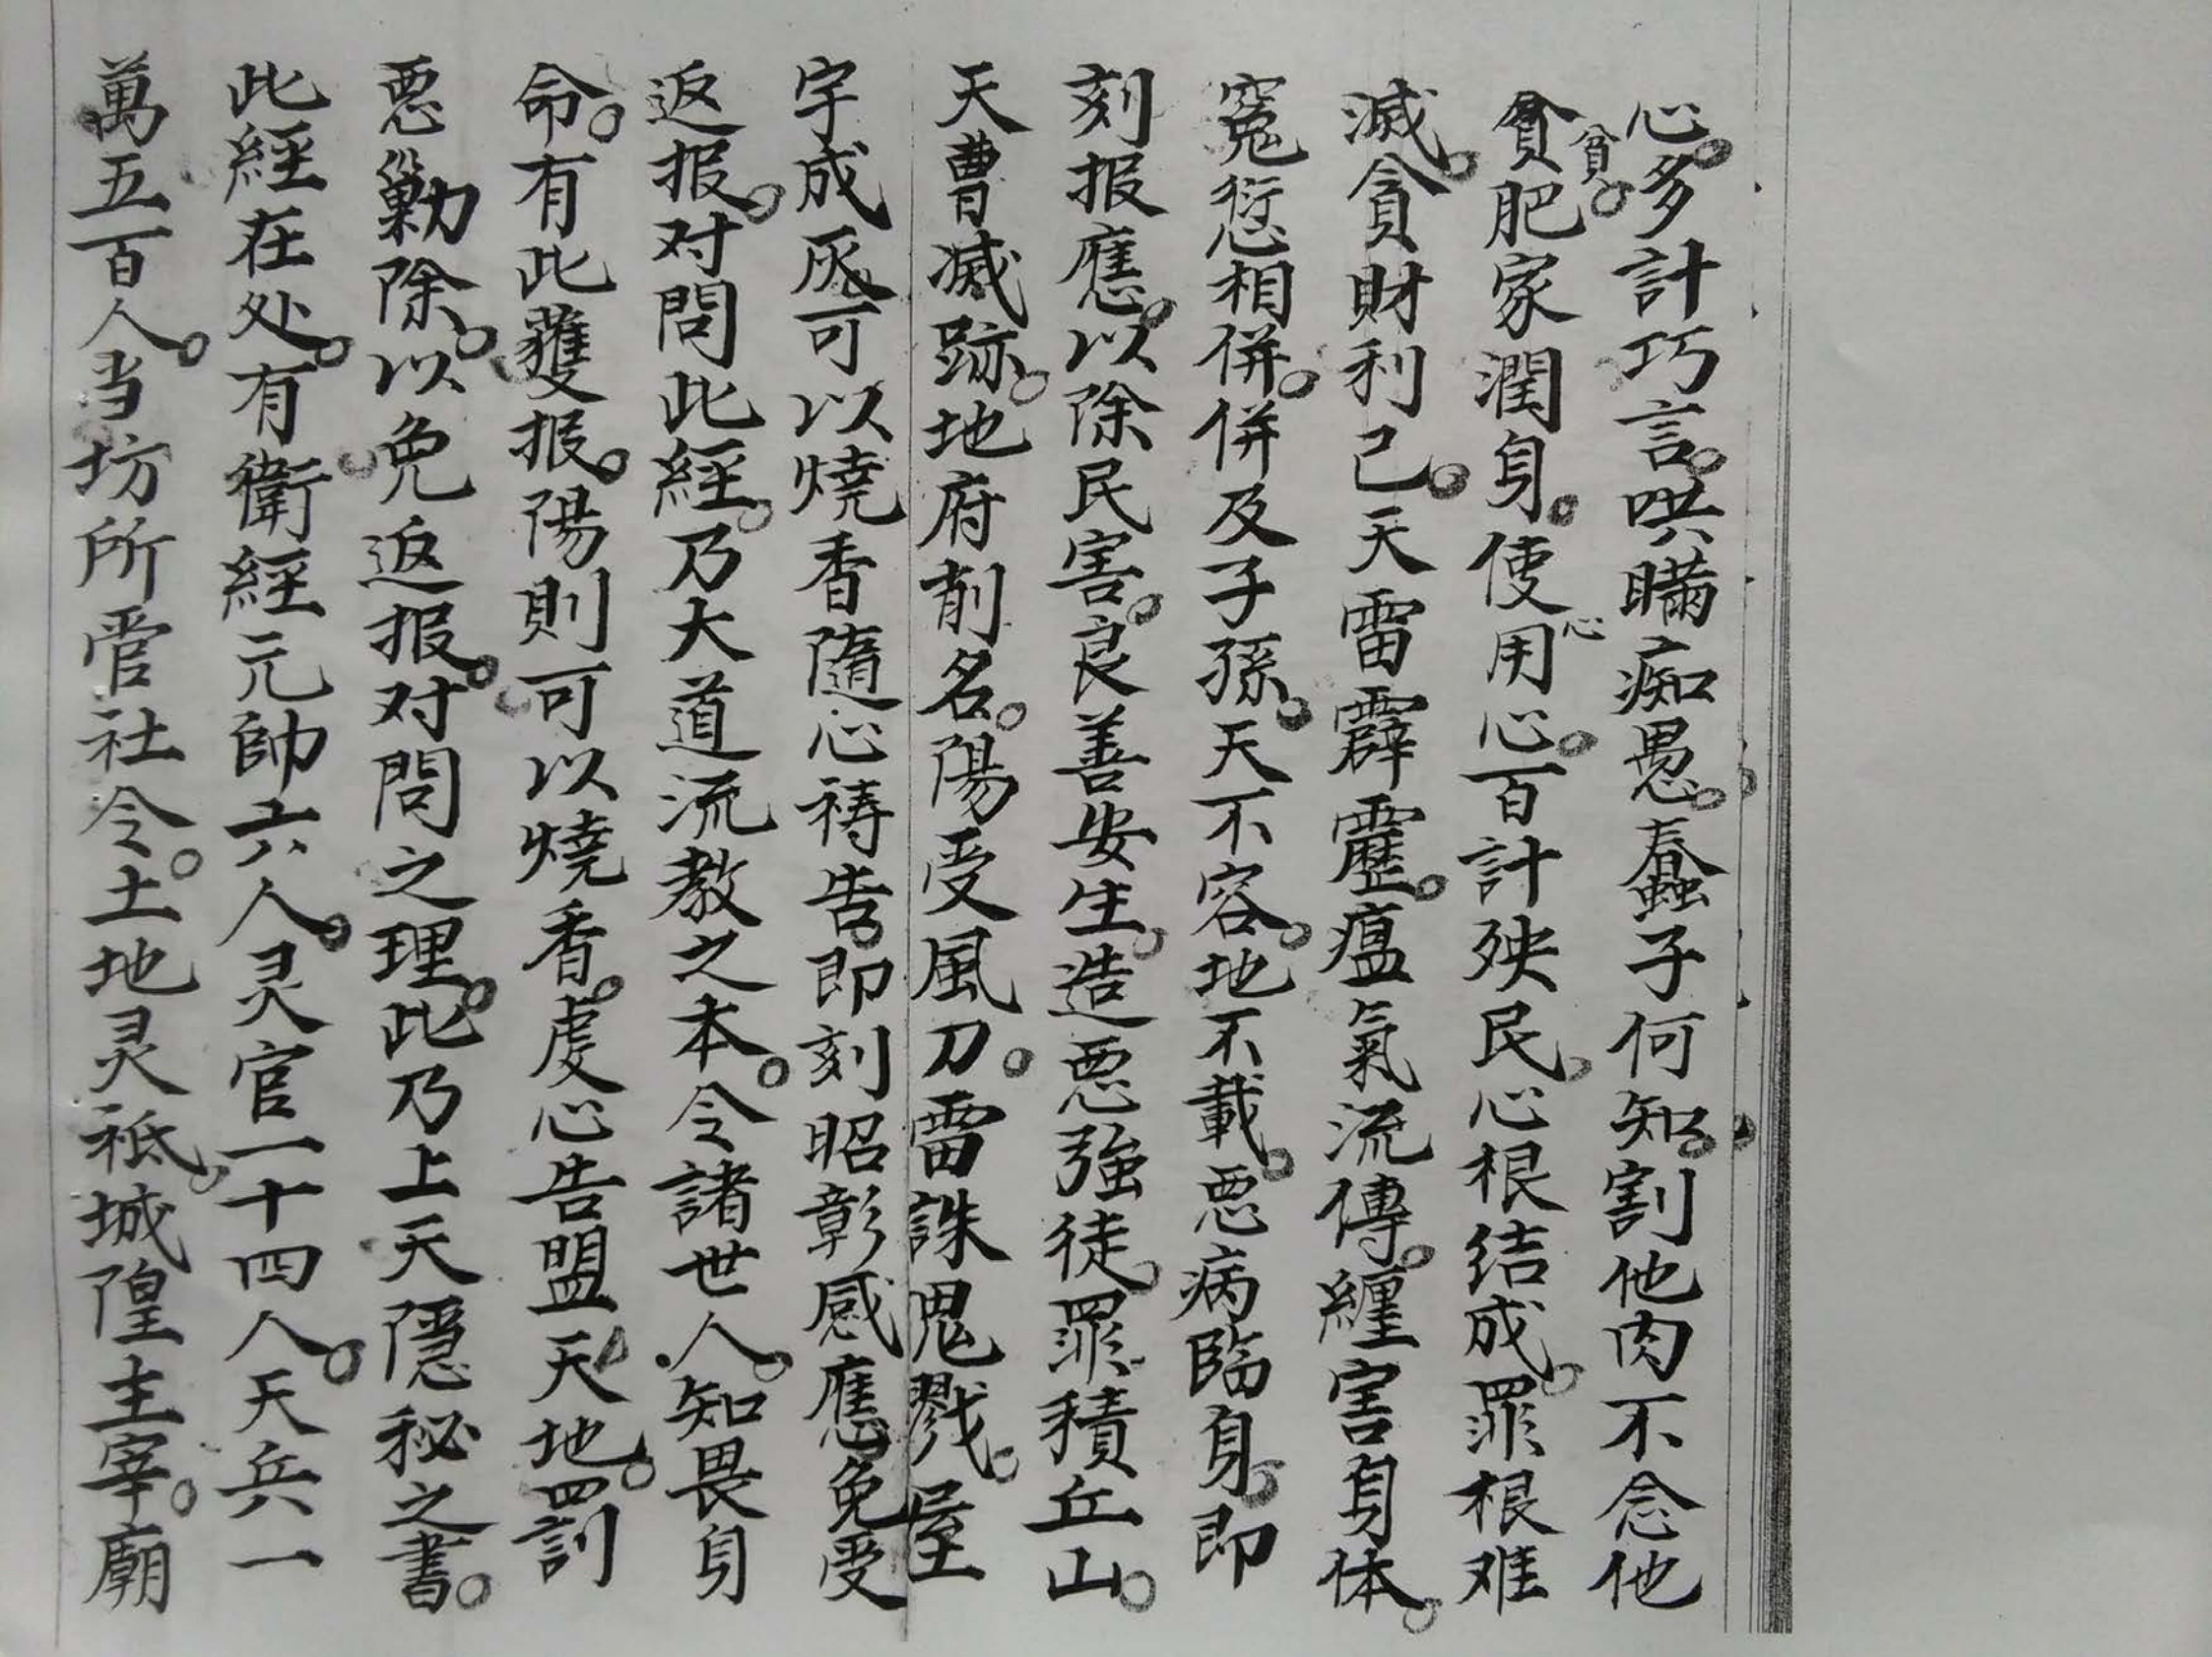 心。多計巧言。哄瞞痴愚。蠢子何知。割他肉不念他
貧。肥家潤身。使用心。百計殃民。心根结成。罪根难
滅。貪財利己。天雷霹靂。瘟氣流傳。纏害身体。
冤愆相併。併及子孫。天不容。地不載。恶病臨身。即
刻报應。以除民害。良善安生。造恶強徒。罪積丘山。
天曹滅跡。地府削名。陽受風刀。雷誅鬼戮。屋
宇成灰可以燒香隨心祷告。即刻昭彰感應免受
返报。对問此經。乃大道流教之本。令諸世人。知畏身
命。有此獲报。陽則可以燒香。虔心告盟天地。罰
恶勦除。以免返报。对問之理。此乃上天隱秘之書。
此經在处。有衛經元帥六人。灵官一十四人。天兵一
萬五百人。当坊所管社令。土地灵祇。城隍主宰。廟